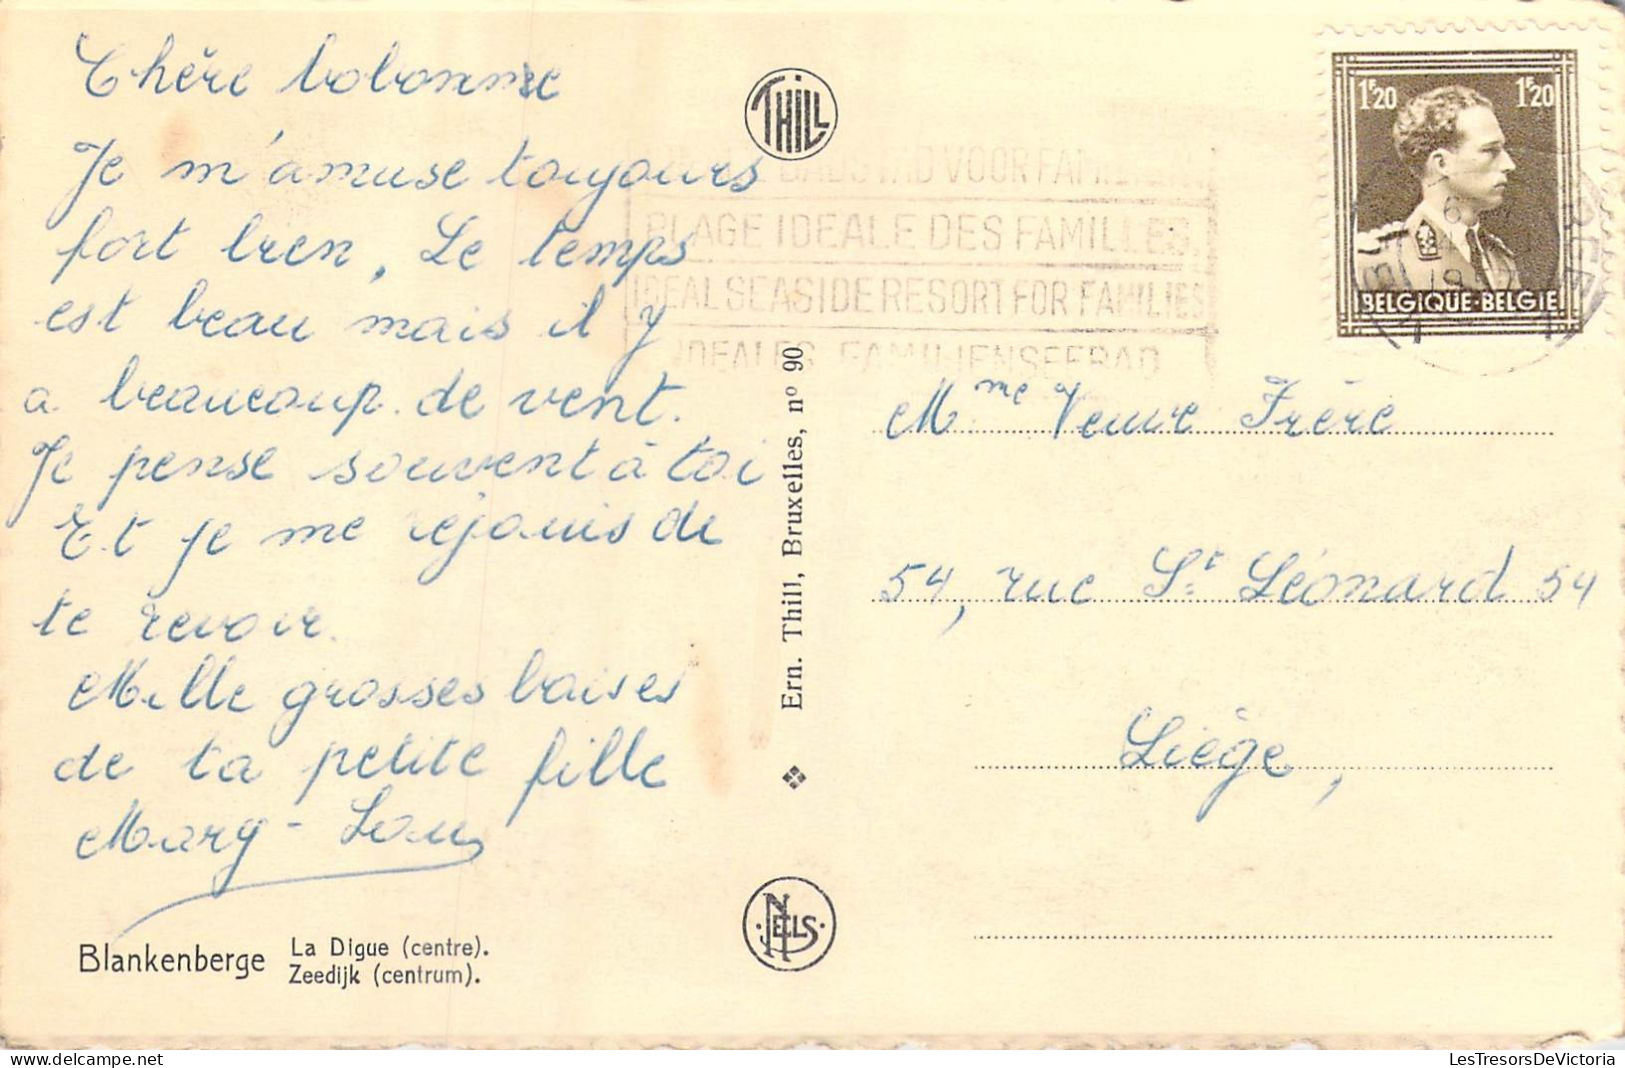 Chère bobonne
Je m'amuse toujours
fort bien, Le temps
est beau mais il y
a beaucoup de vent.
Je pense souvent à toi
Et je me rejouis de
te revoir.
Mille grosses baises
de ta petite fille
Mary-Lou
Blankenberge La Digue (centre).
Zeedijk (centrum).
THILL
Ern. Thill, Bruxelles, nº 90
NELS
VOOR FAMILIEN
PLAGE IDEALE DES FAMILLES
IDEAL SEASIDE RESORT FOR FAMILIES
IDEALES FAMILIENSEEBAD
1F20 1F20
BELGIQUE-BELGIE
Mme Veuve Frère
54, rue St Léonard 54
Liège,
LesTresorsDeVictoria.com